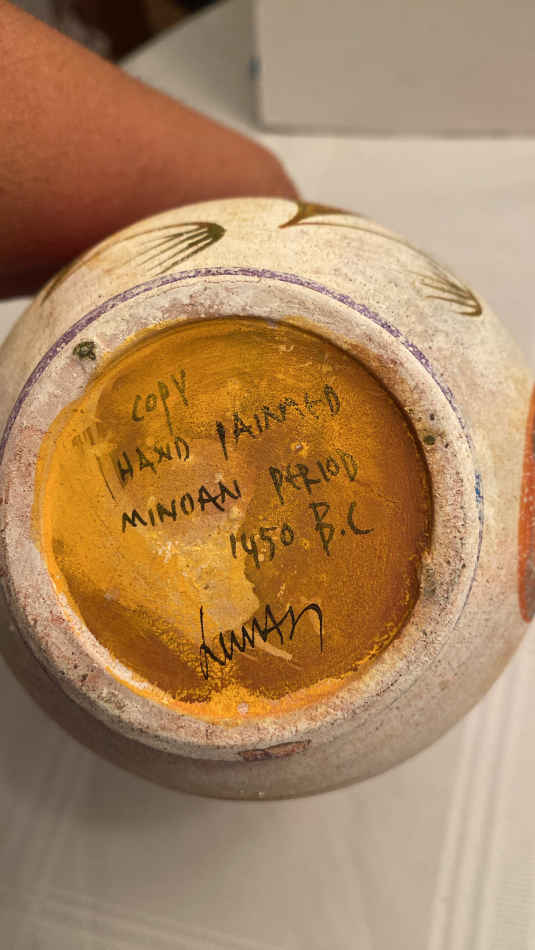 COPY
HAND PAINTED
MINOAN PERIOD
1450 B.C